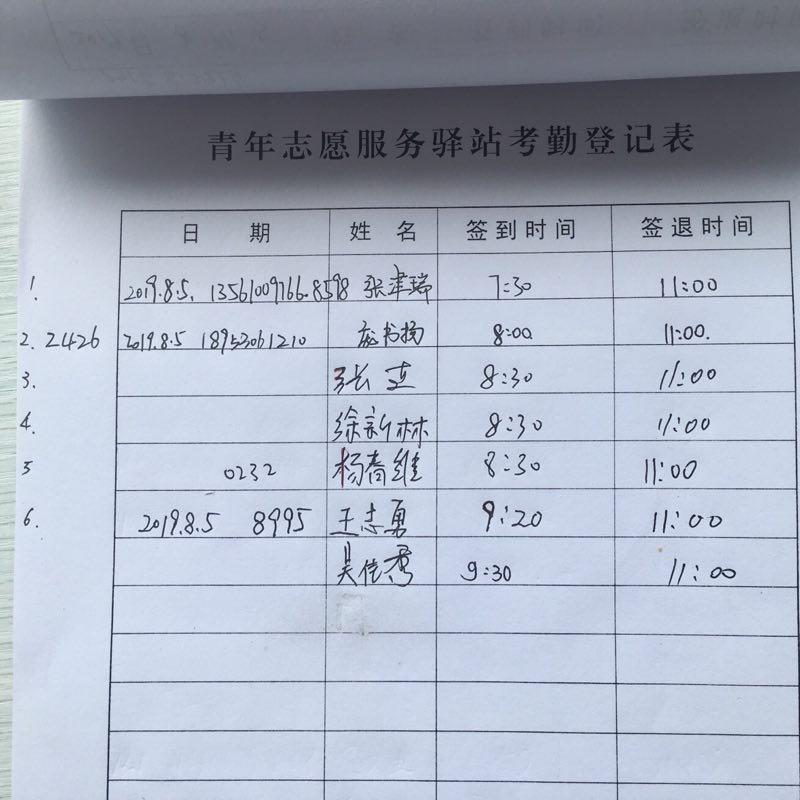 青年志愿服务驿站考勤登记表
日 期 姓 名 签到时间 签退时间
1. 2019.8.5. 13561009766.8598 张津瑞 7:30 11:00
2. 2426 2019.8.5 18953061210 庞书杨 8:00 11:00.
3. 张立 8:30 11:00
4. 徐新林 8:30 11:00
5 0232 杨春维 8:30 11:00
6. 2019.8.5 8995 王志勇 9:20 11:00
吴信秀 9:30 11:00